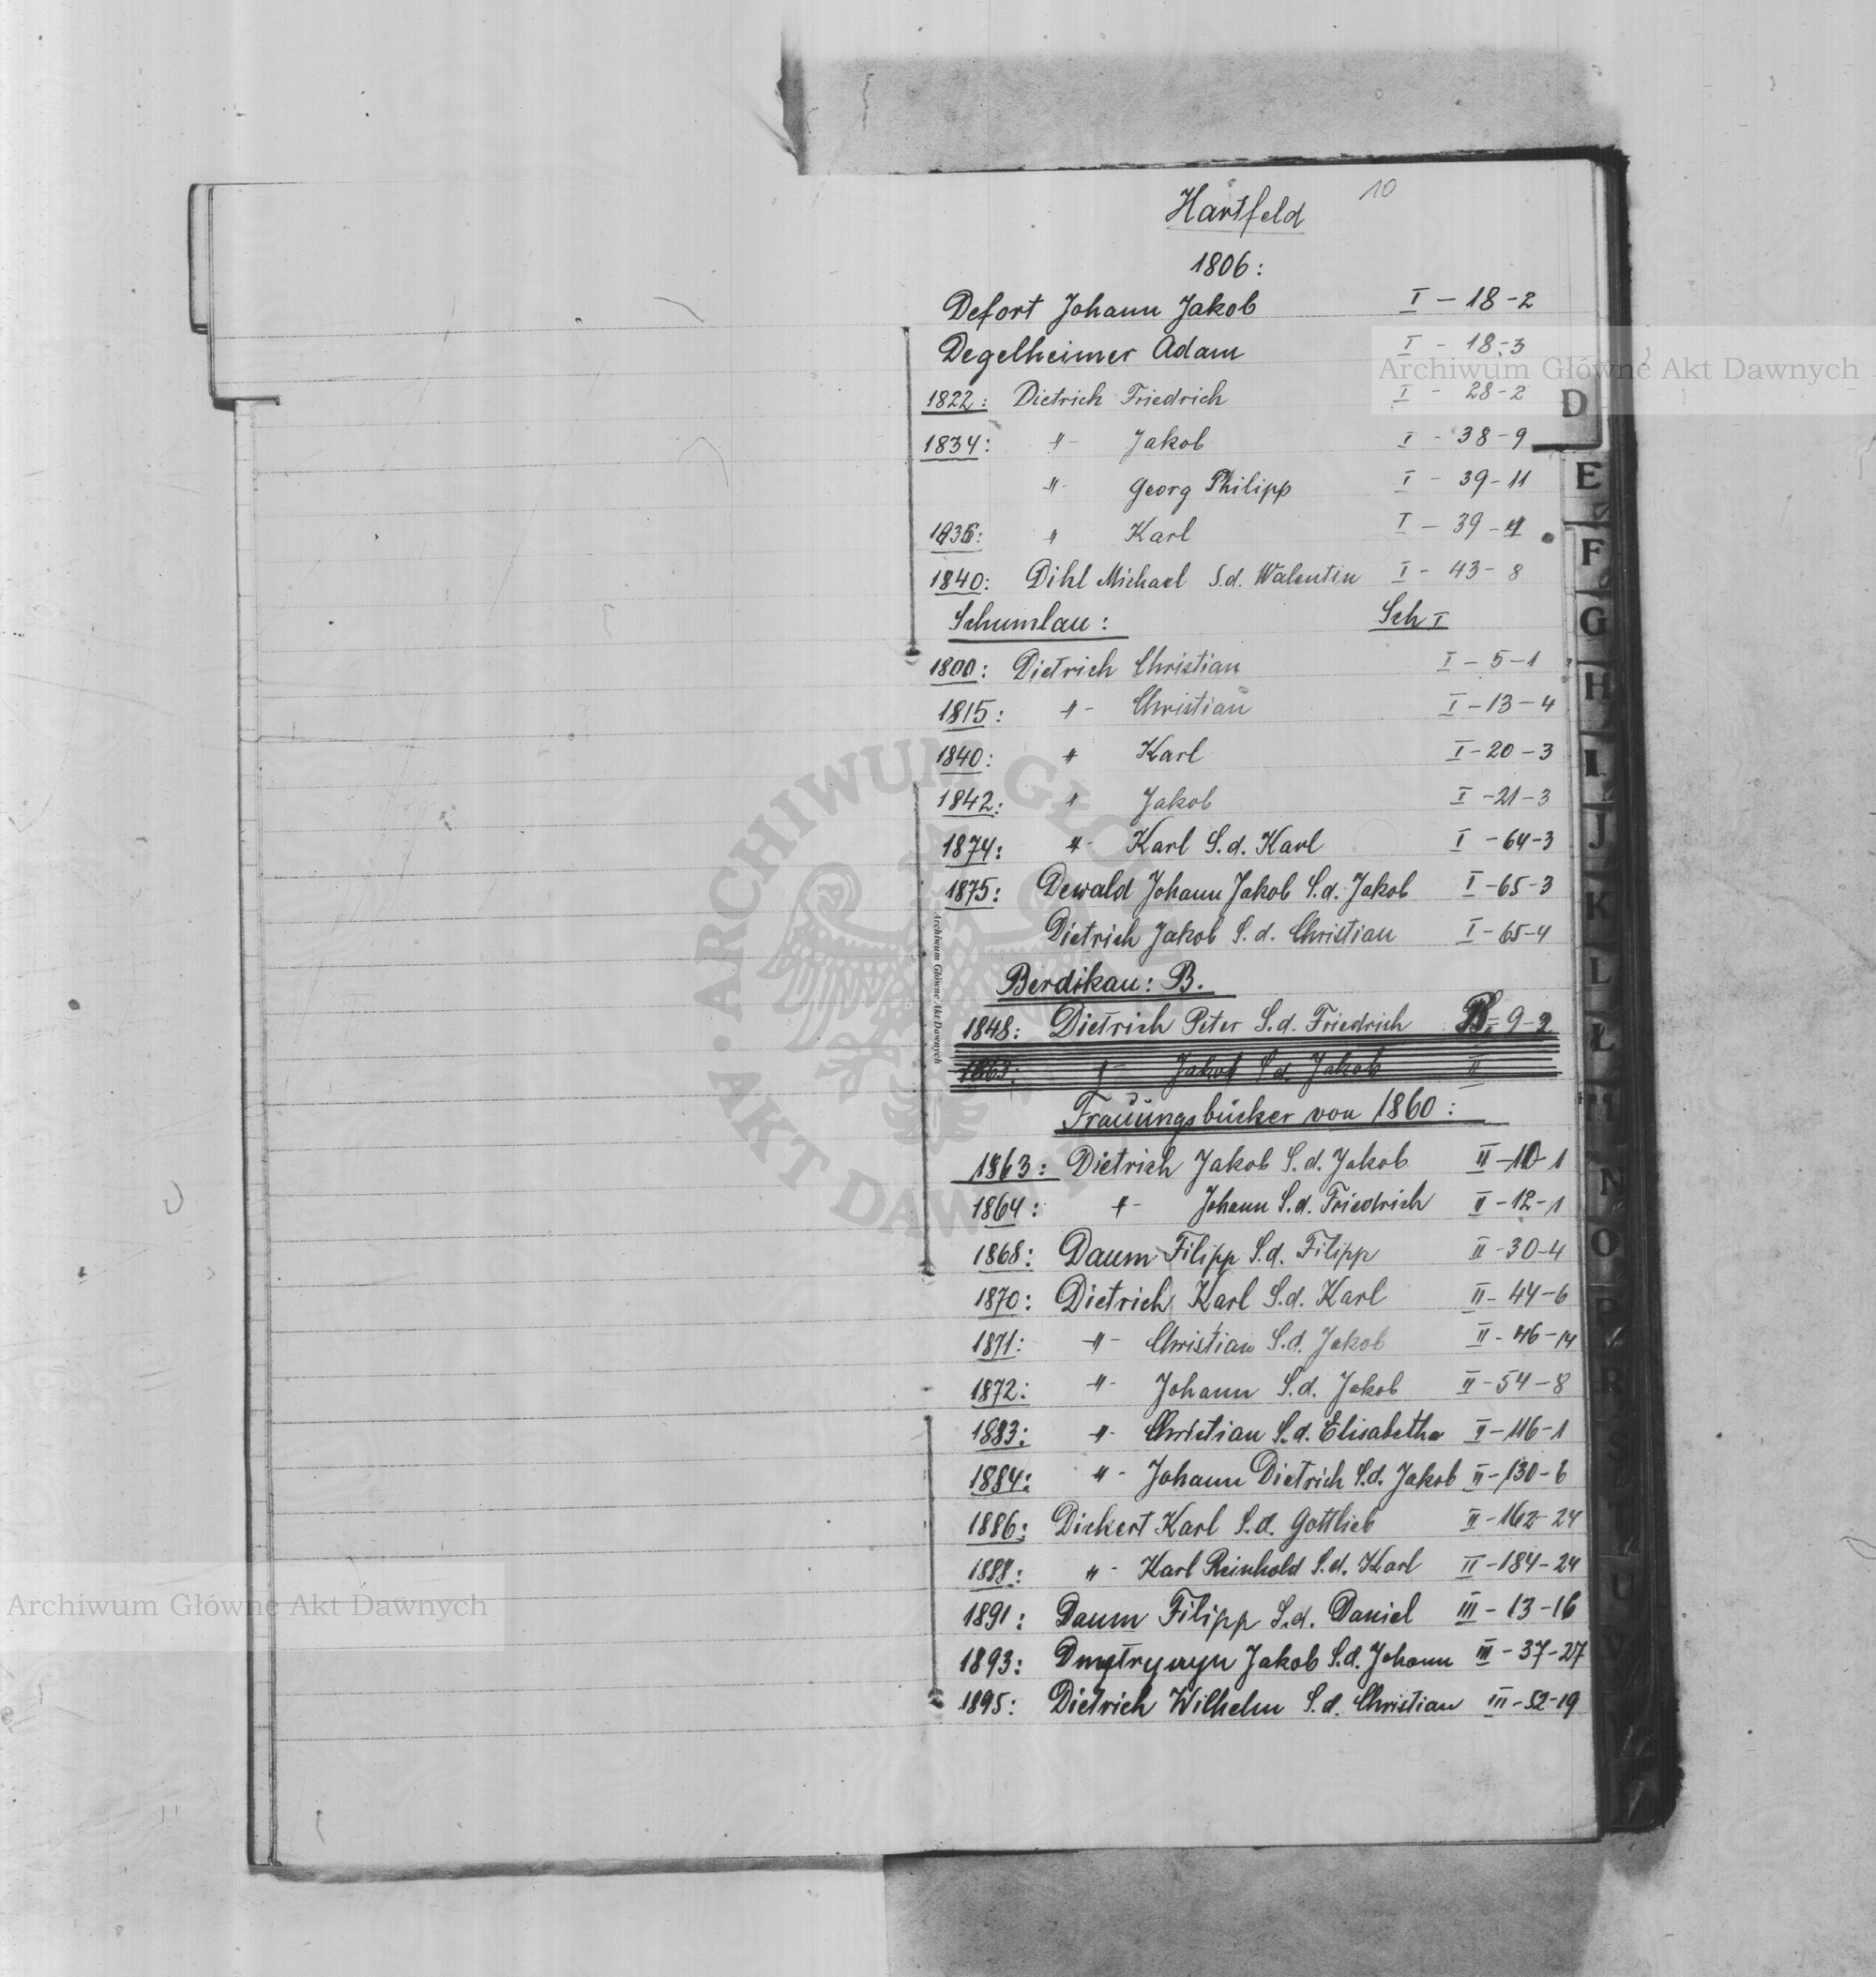 10
Hartfeld
1806:
Defort Johann Jakob I - 18 - 2
Degelheimer Adam I - 18 - 3
1822: Dietrich Friedrich I - 28 - 2
1834: -"- Jakob I - 38 - 9
-"- Georg Philipp I - 39 - 11
1836: " Karl I - 39 - 4
1840: Dihl Michael S.d. Walentin I - 43 - 8
Schumlau: Sch I
1800: Dietrich Christian I - 5 - 1
1815: -"- Christian I - 13 - 4
1840: " Karl I - 20 - 3
1842: " Jakob I - 21 - 3
1874: -"- Karl S.d. Karl I - 64 - 3
1875: Dewald Johann Jakob S.d. Jakob I - 65 - 3
Dietrich Jakob S.d. Christian I - 65 - 4
Berdikau: B.
1848: Dietrich Peter S.d. Friedrich B - 9 - 2
1863: -"- Jakob S.d. Jakob II
Trauungsbücher von 1860:
1863: Dietrich Jakob S.d. Jakob II - 10 - 1
1864: -"- Johann S.d. Friedrich II - 12 - 1
1868: Daum Filipp S.d. Filipp II - 30 - 4
1870: Dietrich Karl S.d. Karl II - 44 - 6
1871: -"- Christian S.d. Jakob II - 46 - 14
1872: -"- Johann S.d. Jakob II - 54 - 8
1883: -"- Christian S.d. Elisabetha II - 116 - 1
1884: -"- Johann Dietrich S.d. Jakob II - 130 - 6
1886: Dickert Karl S.d. Gottlieb II - 162 - 24
1888: -"- Karl Reinhold S.d. Karl II - 184 - 24
1891: Daum Filipp S.d. Daniel III - 13 - 16
1893: Jakob S.d. Johann III - 37 - 27
1895: Dietrich Wilhelm S.d. Christian III - 52 - 19
D
E
F
G
H
I
J
K
L
Ł
M
N
O
P
R
S
T
U
V
Archiwum Główne Akt Dawnych
Archiwum Główne Akt Dawnych
Archiwum Główne Akt Dawnych
ARCHIWUM GŁÓWNE AKT DAWNYCH